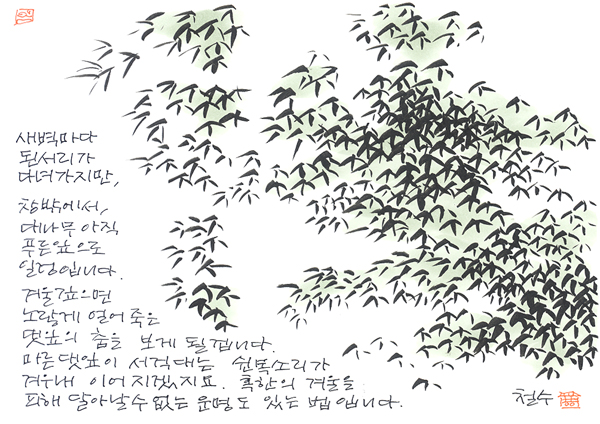 새벽마다
된서리가
다녀가지만,
창밖에서,
대나무 아직
푸른잎으로
일렁입니다.
겨울깊으면
노랗게 얼어 죽은
댓잎의 춤을 보게 될겁니다.
마른댓잎이 서걱대는 쉰목소리가
겨우내 이어지겠지요. 혹한의 겨울을
피해 달아날수 없는 운명도 있는 법입니다.
철수